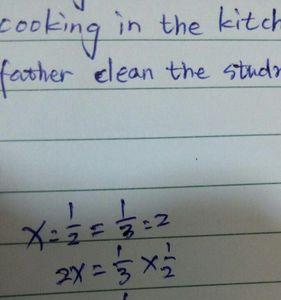 cooking in the kitch
father clean the stud
x = 1/2 = 1/3 = 2
2x = 1/3 × 1/2